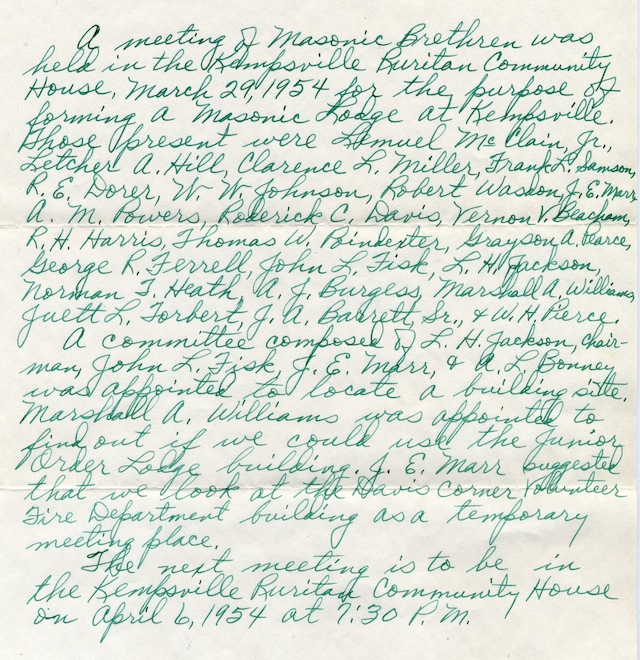 A meeting of Masonic Brethren was
held in the Kempsville Ruritan Community
House, March 29, 1954 for the purpose of
forming a Masonic Lodge at Kempsville.
Those present were Lemuel McClain, Jr.,
Letcher A. Hill, Clarence L. Miller, Frank L. Samson,
R. E. Dorer, W. W. Johnson, Robert Wasson, J. E. Marr,
A. M. Powers, Roderick C. Davis, Vernon V. Beacham,
R. H. Harris, Thomas W. Poindexter, Grayson A. Pearce,
George R. Ferrell, John L. Fisk, L. H. Jackson,
Norman F. Heath, A. J. Burgess, Marshall A. Williams,
Juett L. Torbert, J. A. Barrett, Sr., & W. H. Pierce.
A committee composed of L. H. Jackson, chair-
man, John L. Fisk, J. E. Marr, & A. L. Bonney
was appointed to locate a building site.
Marshall A. Williams was appointed to
find out if we could use the Junior
Order Lodge building. J. E. Marr suggested
that we look at the Davis Corner Volunteer
Fire Department building as a temporary
meeting place.
The next meeting is to be in
the Kempsville Ruritan Community House
on April 6, 1954 at 7:30 P. M.